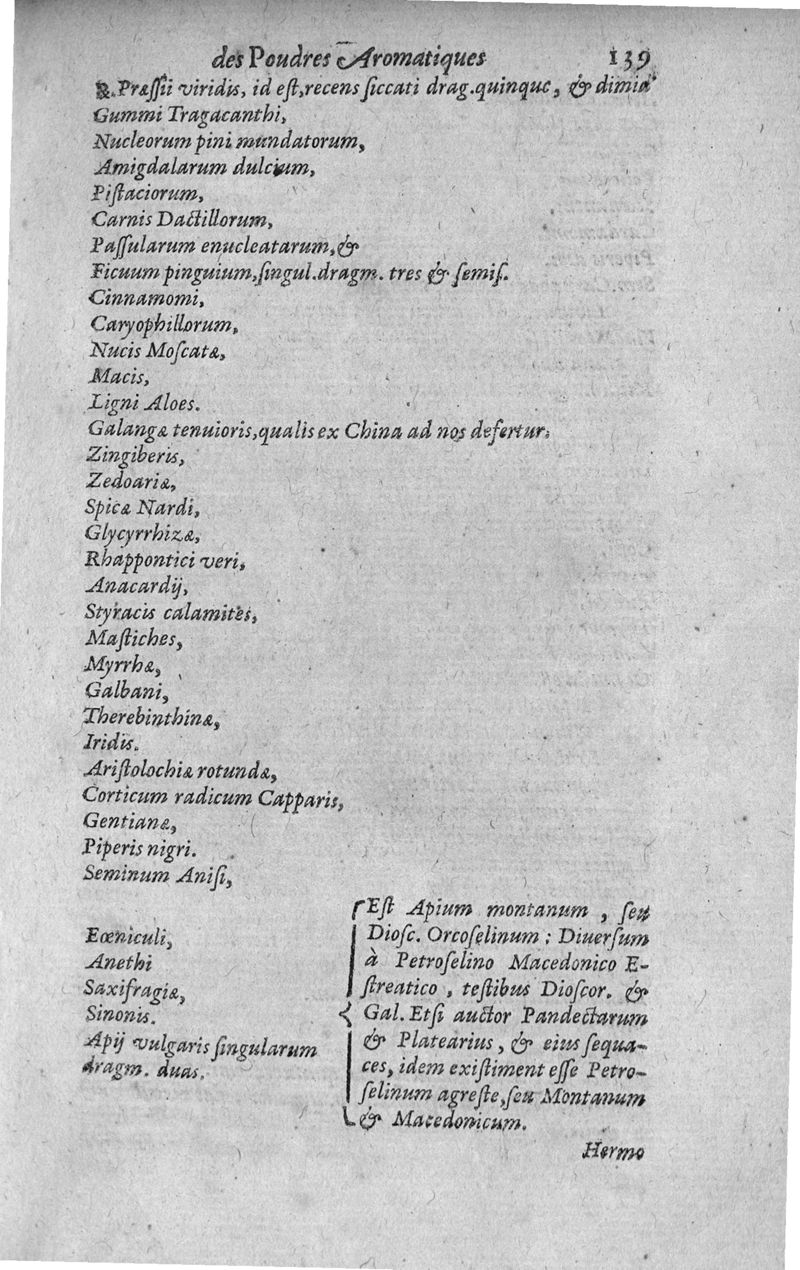 des Poudres Aromatiques 139
℞. Præſſii viridis, id eſt, recens ſiccati drag. quinque, & dimid
Gummi Tragacanthi,
Nucleorum pini mundatorum,
Amigdalarum dulcium,
Piſtaciorum,
Carnis Dactillorum,
Paſſularum enucleatarum, &
Ficuum pinguium, ſingul. dragm. tres & ſemiſ.
Cinnamomi,
Caryophillorum,
Nucis Moſcatæ,
Macis,
Ligni Aloes.
Galangæ tenuioris, qualis ex China ad nos defertur.
Zingiberis,
Zedoariæ,
Spicæ Nardi,
Glycyrrhizæ,
Rhappontici veri,
Anacardij,
Styracis calamites,
Maſtiches,
Myrrhæ,
Galbani,
Therebinthinæ,
Iridis.
Ariſtolochiæ rotundæ,
Corticum radicum Capparis,
Gentianæ,
Piperis nigri.
Seminum Aniſi,
Eœniculi,
Anethi
Saxifragiæ,
Sinonis.
Apij vulgaris ſingularum
dragm. duas.
Eſt Apium montanum, ſeu
Dioſc. Orcoſelinum : Diuerſum
à Petroſelino Macedonico E-
ſtreatico, teſtibus Dioſcor. &
Gal. Etſi auctor Pandectarum
& Platearius, & eius ſequa-
ces, idem exiſtiment eſſe Petro-
ſelinum agreſte, ſeu Montanum
& Macedonicum.
Hermo